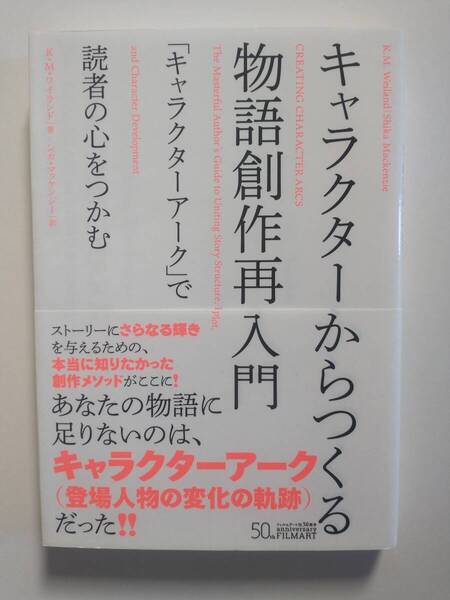 K.M. Weiland/Shika Mackenzie
キャラクターからつくる
CREATING CHARACTER ARCS
物語創作再入門
The Masterful Author's Guide to Uniting Story Structure, Plot,
「キャラクターアーク」で
and Character Development
読者の心をつかむ
K・M・ワイランド 著 シカ・マッケンジー 訳
ストーリーにさらなる輝き
を与えるための、
本当に知りたかった
創作メソッドがここに!
あなたの物語に
足りないのは、
キャラクターアーク
(登場人物の変化の軌跡)
だった!!
50th
フィルムアート社50周年
anniversary
FILMART